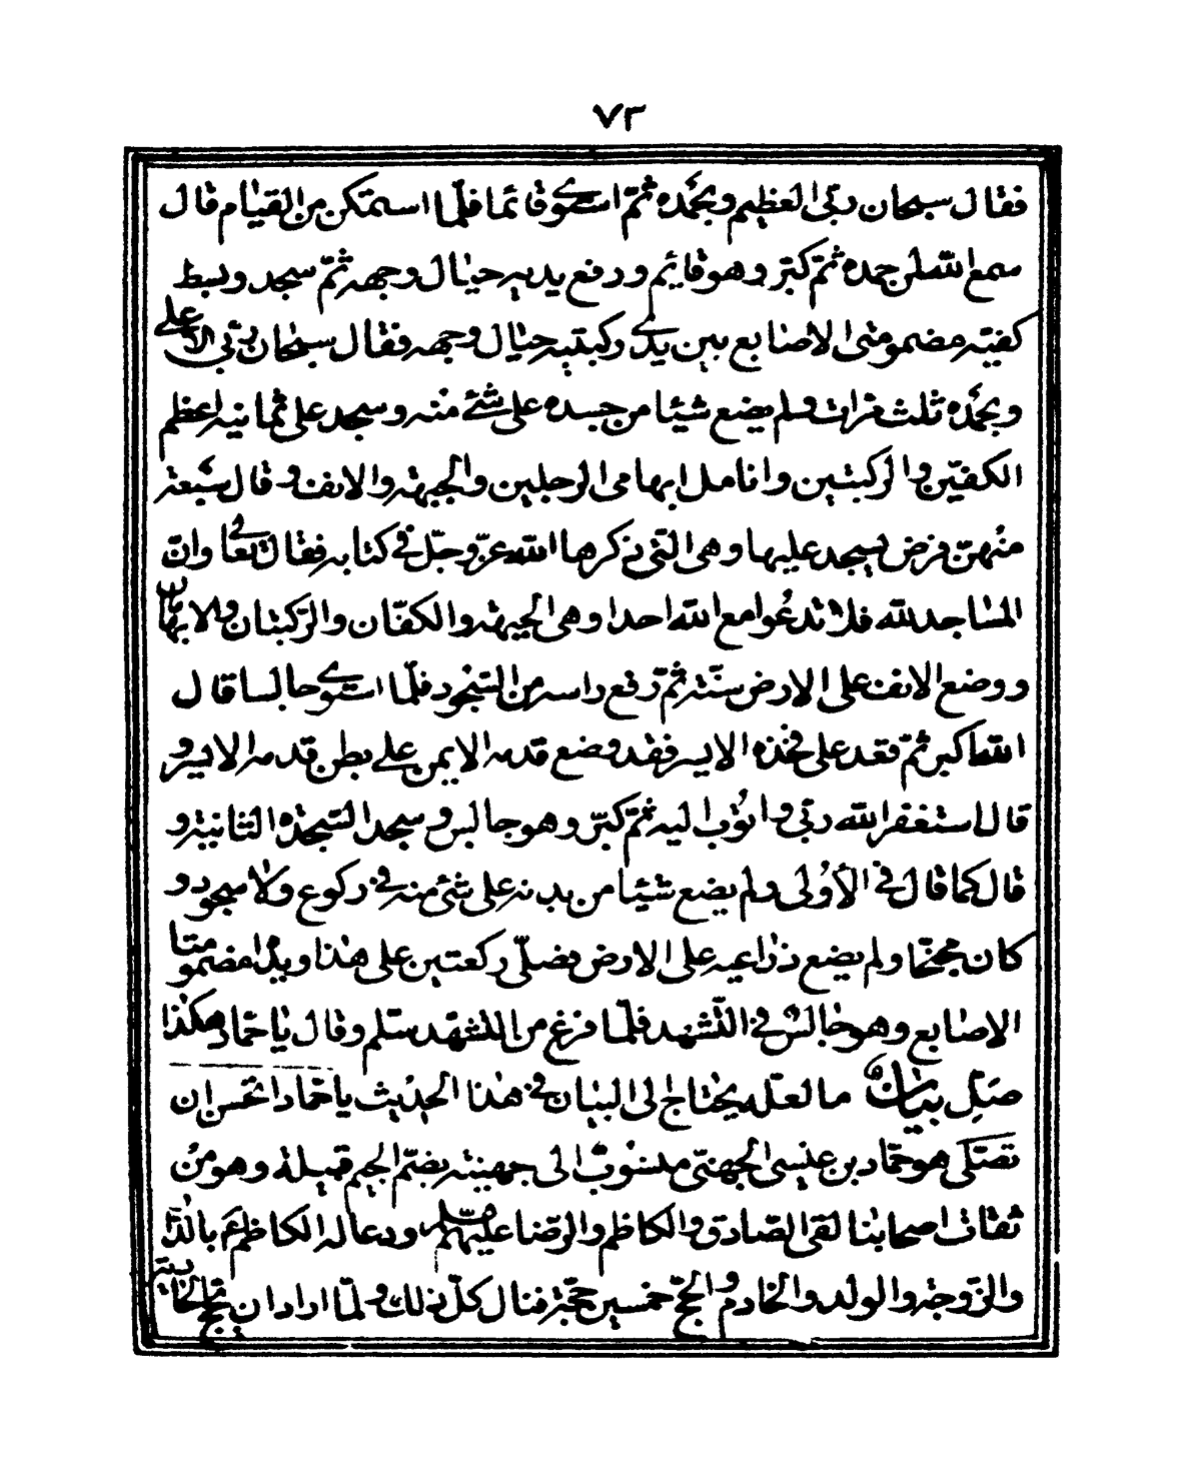 ٧٣
فقال سبحان ربّى العظيم وبحمده ثمّ استوى قائما فلمّا استمكن من القيام قال
سمع الله لمن حمده ثمّ كبّر وهو قايم ورفع يديه حيال وجهه ثمّ سجد وبسط
كفيّه مضمومتى الاصابع بين يدى ركبتيه حيال وجهه فقال سبحان ربّى الاعلى
وبحمده ثلث مرات ولم يضع شيئا من جسده على شئ منه وسجد على ثمانية اعظم
الكفيّن والركبتين وانامل ابهامى الرجلين والجبهة والانف وقال سبعة
منهنّ فرض يسجد عليها وهى التى ذكرها الله عزّوجلّ فى كتابه فقال تعالى وانّ
المساجد لله فلا تدعوا مع الله احدا وهى الجبهة والكفّان والرّكبتان والابهامان
ووضع الانف على الارض سنّة ثمّ رفع راسه من السّجود فلمّا استوى جالسا قال
الله اكبر ثمّ قعد على فخذه الايسر وقد وضع قدمه الايمن على بطن قدمه الايسر و
قال استغفر الله ربّى واتوب اليه ثمّ كبّر وهو جالس وسجد السّجدة الثّانية و
قال كما قال فى الأولى ولم يضع شيئا من بدنه على شئ منه فى ركوع ولا سجود و
كان مجنّحا ولم يضع ذراعيه على الارض فصلّى ركعتين على هذا ويداه مضمومتا
الاصابع وهو جالس فى التّشهد فلمّا فرغ من التشهّد سلّم وقال يا حمّاد هكذا
صلّ بيان ما لعلّه يحتاج الى البيان فى هذا الحديث يا حمّاد اتحسن ان
تصلّى هو حمّاد بن عيسى الجهنىّ منسوب الى جهينة بضمّ الجيم قبيلة وهو من
ثقات اصحابنا لقى الصّادق والكاظم والرّضا عليهم ودعا له الكاظم ع بالدّار
والزّوجة والولد والخادم والحجّ خمسين حجّة فنال كلّ ذلك ولمّا اراد ان يحجّ الحادية